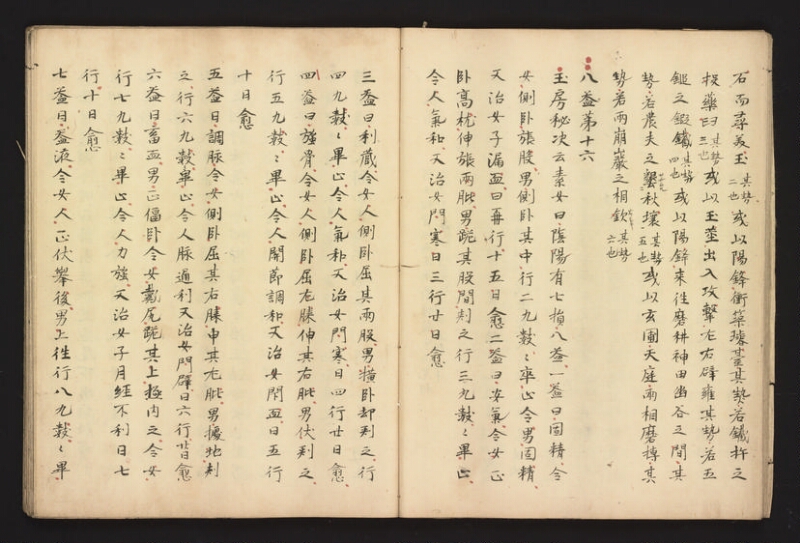 石而尋美玉其勢二也或以陽鋒衝築璿臺其勢若鐵杵之
投藥臼其勢三也或以玉莖出入攻擊左右辟雍其勢若五
鎚之鍛鐵其勢四也或以陽鋒來往磨耕神田幽谷之間其
勢若農夫之墾秋壤其勢五也或以玄圃天庭兩相磨搏其
勢若兩崩巖之相欽其勢六也
八益第十六
玉房秘决云素女曰陰陽有七損八益一益曰固精令
女側卧張股男側卧其中行二九數〻卒止令男固精
又治女子漏血日再行十五日愈二益曰安氣令女正
卧高枕伸張兩䏶男跪其股間刾之行三九數〻畢止
令人氣和又治女門寒日三行廿日愈
三益曰利藏令女人側卧屈其兩股男横卧却刾之行
四九數〻畢止令人氣和又治女門寒日四行廿日愈
四益曰強骨令女人側卧屈左膝伸其右䏶男伏刾之
行五九數〻畢止令人關節調和又治女閇血日五行
十日愈
五益曰調脉令女側卧屈其右膝申其左䏶男據地刾
之行六九數畢止令人脉通利又治女門辟日六行廿日愈
六益曰畜血男正偃卧令女戴尾跪其上極内之令女
行七九數〻畢止令人力強又治女子月經不利日七
行十日愈
七益曰益液令女人正伏舉後男上往行八九數〻畢